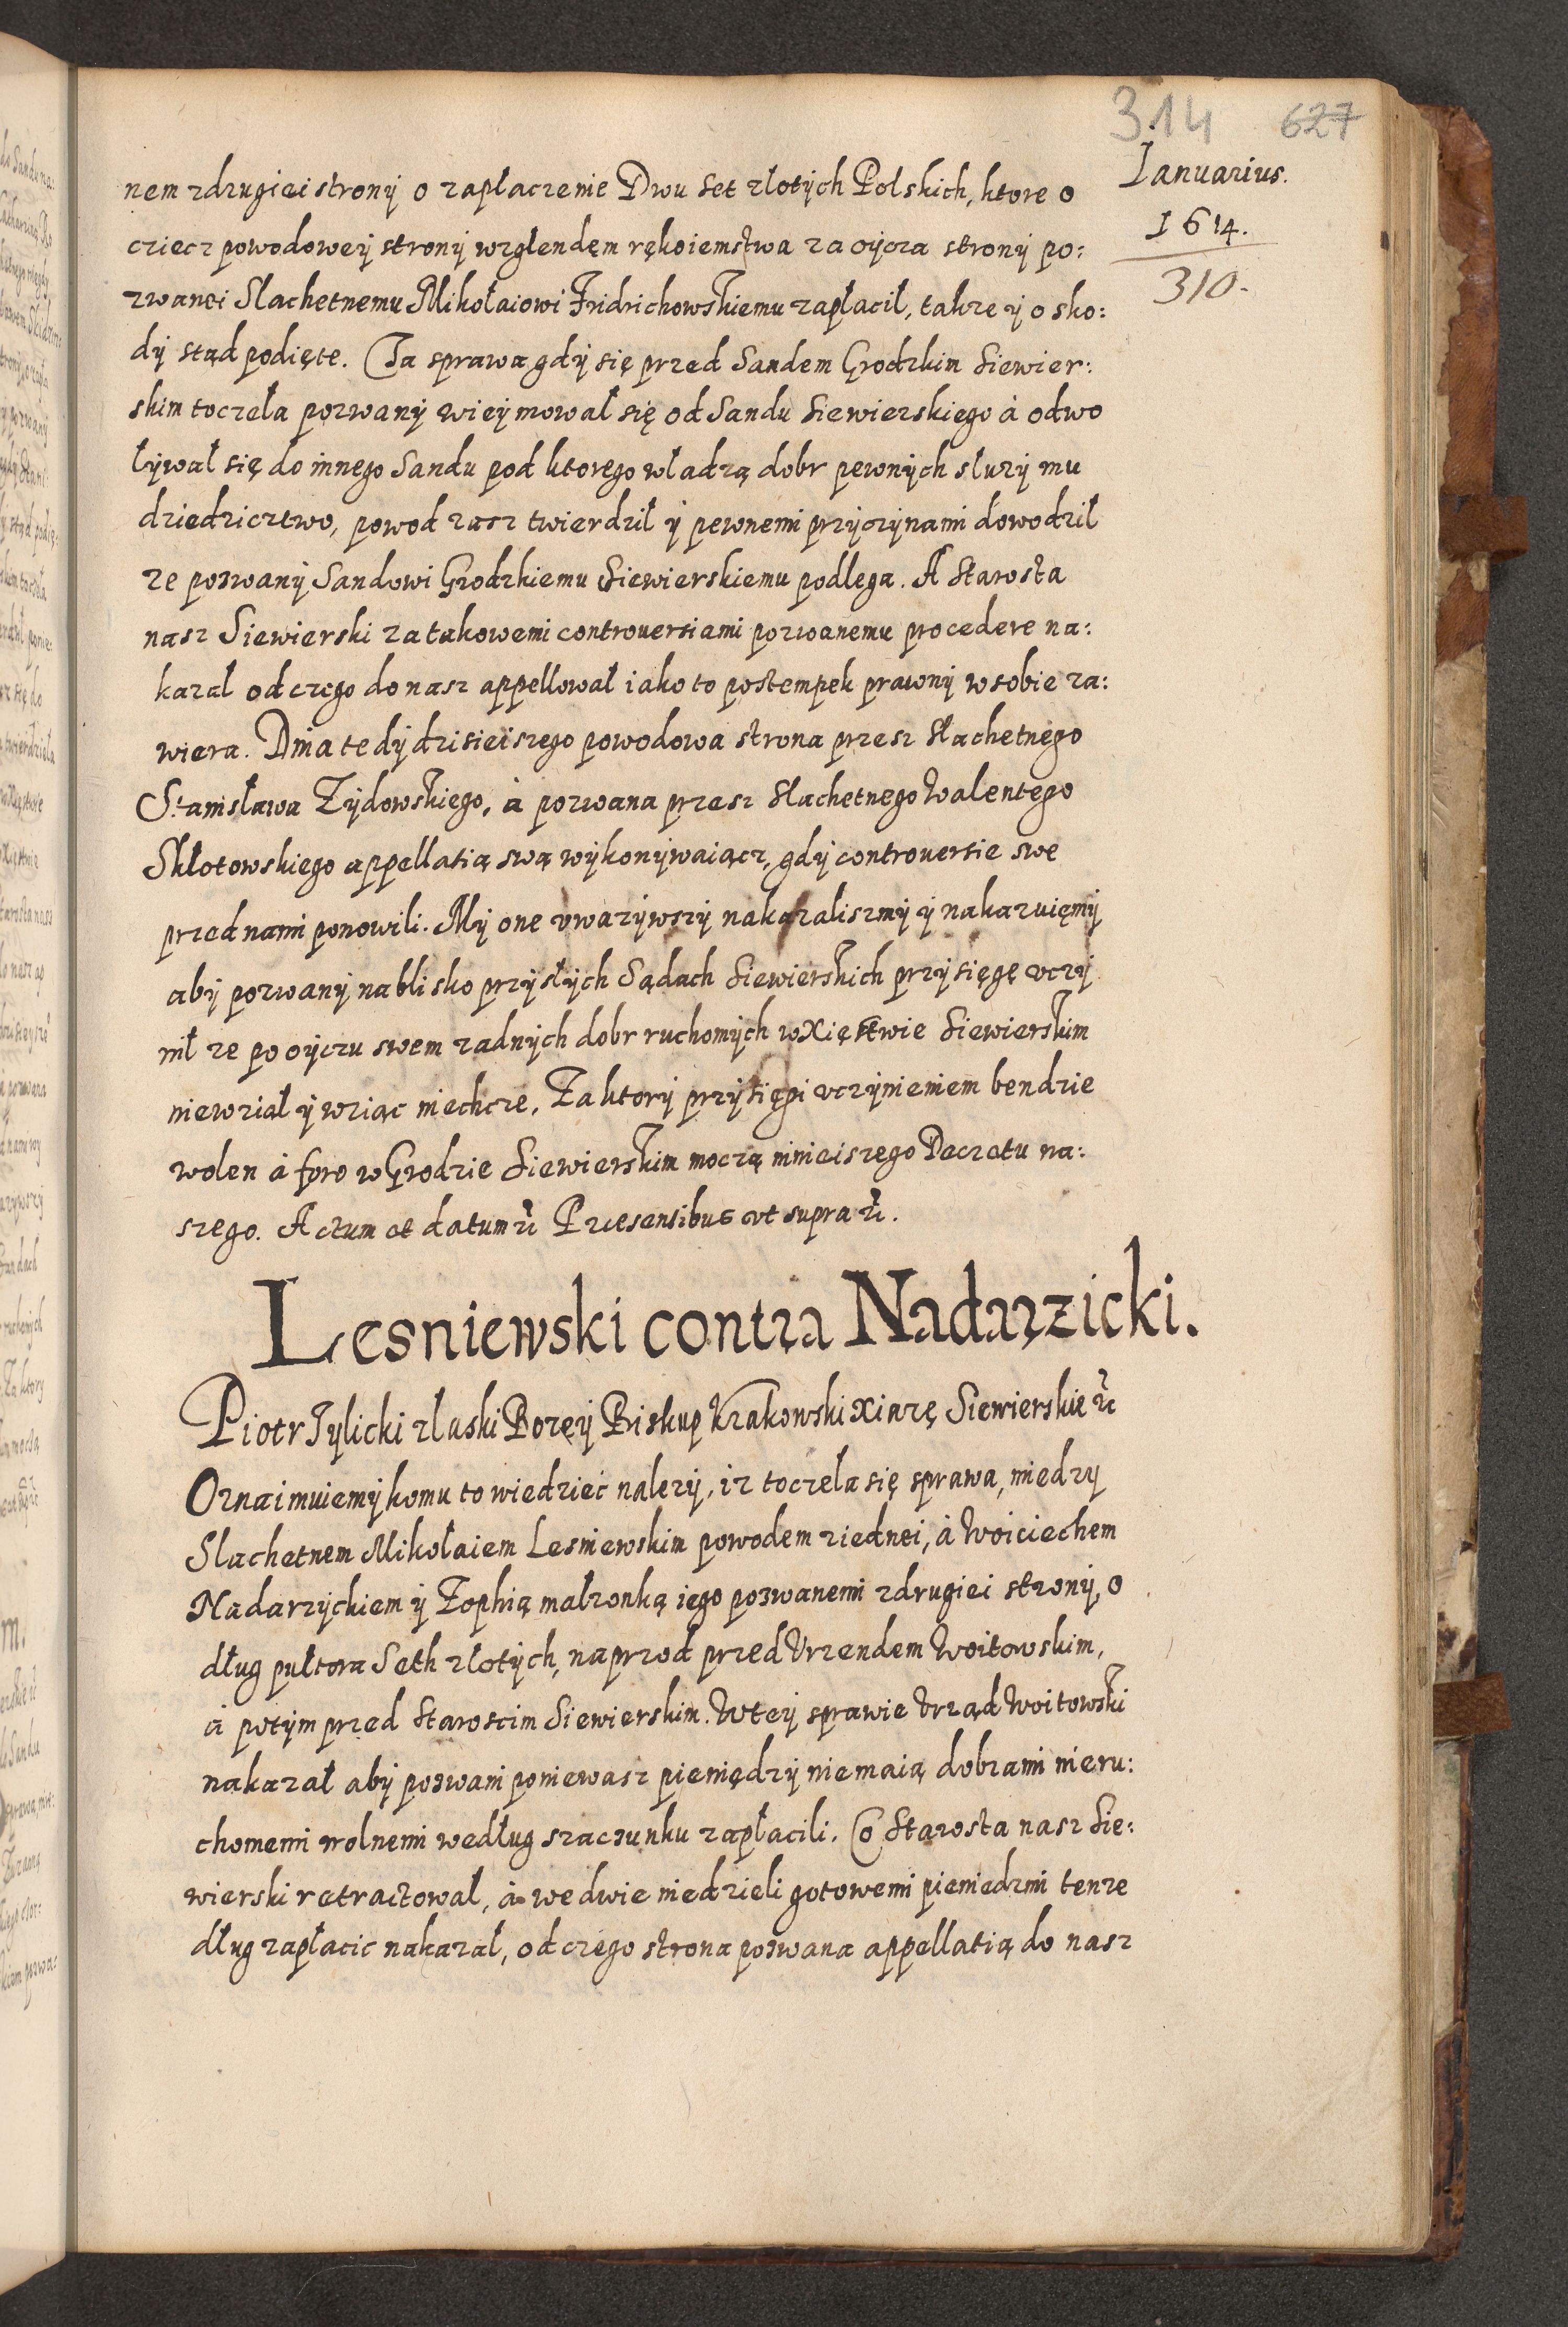 314 627
Ianuarius.
1614.
310.
nem zdrugiei strony o zapłaczenie Dwu set złotych Polskich, ktore o
cziecz powodowey strony wzglendęm rękoiemstwa za oycza strony po:
zwanei Slachetnemu Mikołaiowi Fridrichowskiemu zapłacił, takze y o sko:
dy stąd podięte. Ta sprawa gdy się przed Sandem Grodzkim Siewier:
skim toczeła pozwany wieymował się od Sandu Siewierskiego à odwo
ływał się do innego Sandu pod ktorego władzą dobr pewnych służy mu
dziedzicztwo, powod zasz twierdził y pewnemi przyczynami dowodził
ze pozwany Sandowi Grodzkiemu Siewierskiemu podlega. A Starosta
nasz Siewierski za takowemi controuersiami pozwanemu procedere na:
kazał od czego do nasz appellował iako to postempek prawny w sobie za:
wiera. Dnia tedy dzisieiszego powodowa strona przesz Slachetnego
Stanisława Zydowskiego, à pozwana przesz Slachetnego Walentego
Skłotowskiego appellatią swą wykonywaiącz, gdy controuersie swe
przed nami ponowili. My one vwazywszy nakazaliszmy y nakazuięmy
aby pozwany na blisko przysłych Sądach Siewierskich przysięgę vczy
nił ze po oyczu swem zadnych dobr ruchomych w Xięstwie Siewierskim
niewział y wziąc niechcze, Za ktory przysięgi vczynieniem bendzie
wolen à foro w Grodzie Siewierskim moczą ninieiszego Decretu na:
szego. Actum et datum etc Præsentibus vt supra etc.
Lesniewski contra Nadarzicki.
Piotr Tylicki złaski Bozey Biskup Krakowski Xiąze Siewierskie etc
Oznaimuiemy komu to wiedzieć nalezy, iz toczeła się sprawa, miedzy
Slachetnem Mikołaiem Lesniewskim powodem ziednei, à Woiciechem
Nadarzyckiem y Zophią małzonką iego pozwanemi zdrugiei strony, o
dług pułtora Seth złotych, naprzod przed Vrzendem Woitowskim,
à potym przed Staroscim Siewierskim. W tey sprawie Vrząd Woitowski
nakazał aby pozwani poniewasz pieniędzy nie maią dobrami nieru:
chomemi wolnemi według szacunku zapłacili. Co Starosta nasz Sie:
wierski retractował, à we dwie niedzieli gotowemi pieniedzmi tenze
dług zapłacic nakazał, od czego strona pozwana appellatią do nasz